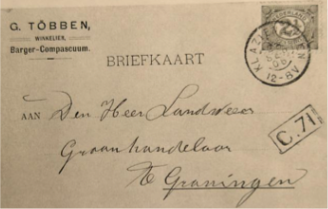 G. TÖBBEN,
WINKELIER,
Barger-Compascuum.
BRIEFKAART
AAN Den Heer Landweer
Graanhandelaar
Te Groningen
KLAZIENAVEEN
12-8V
C.71